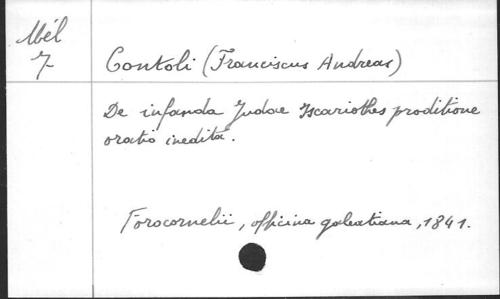 Mél
7
Contoli (Franciscus Andreas)
De infanda Judae Iscariothes proditione
oratio inedita.
Forocornelii, officina galeatiana, 1841.